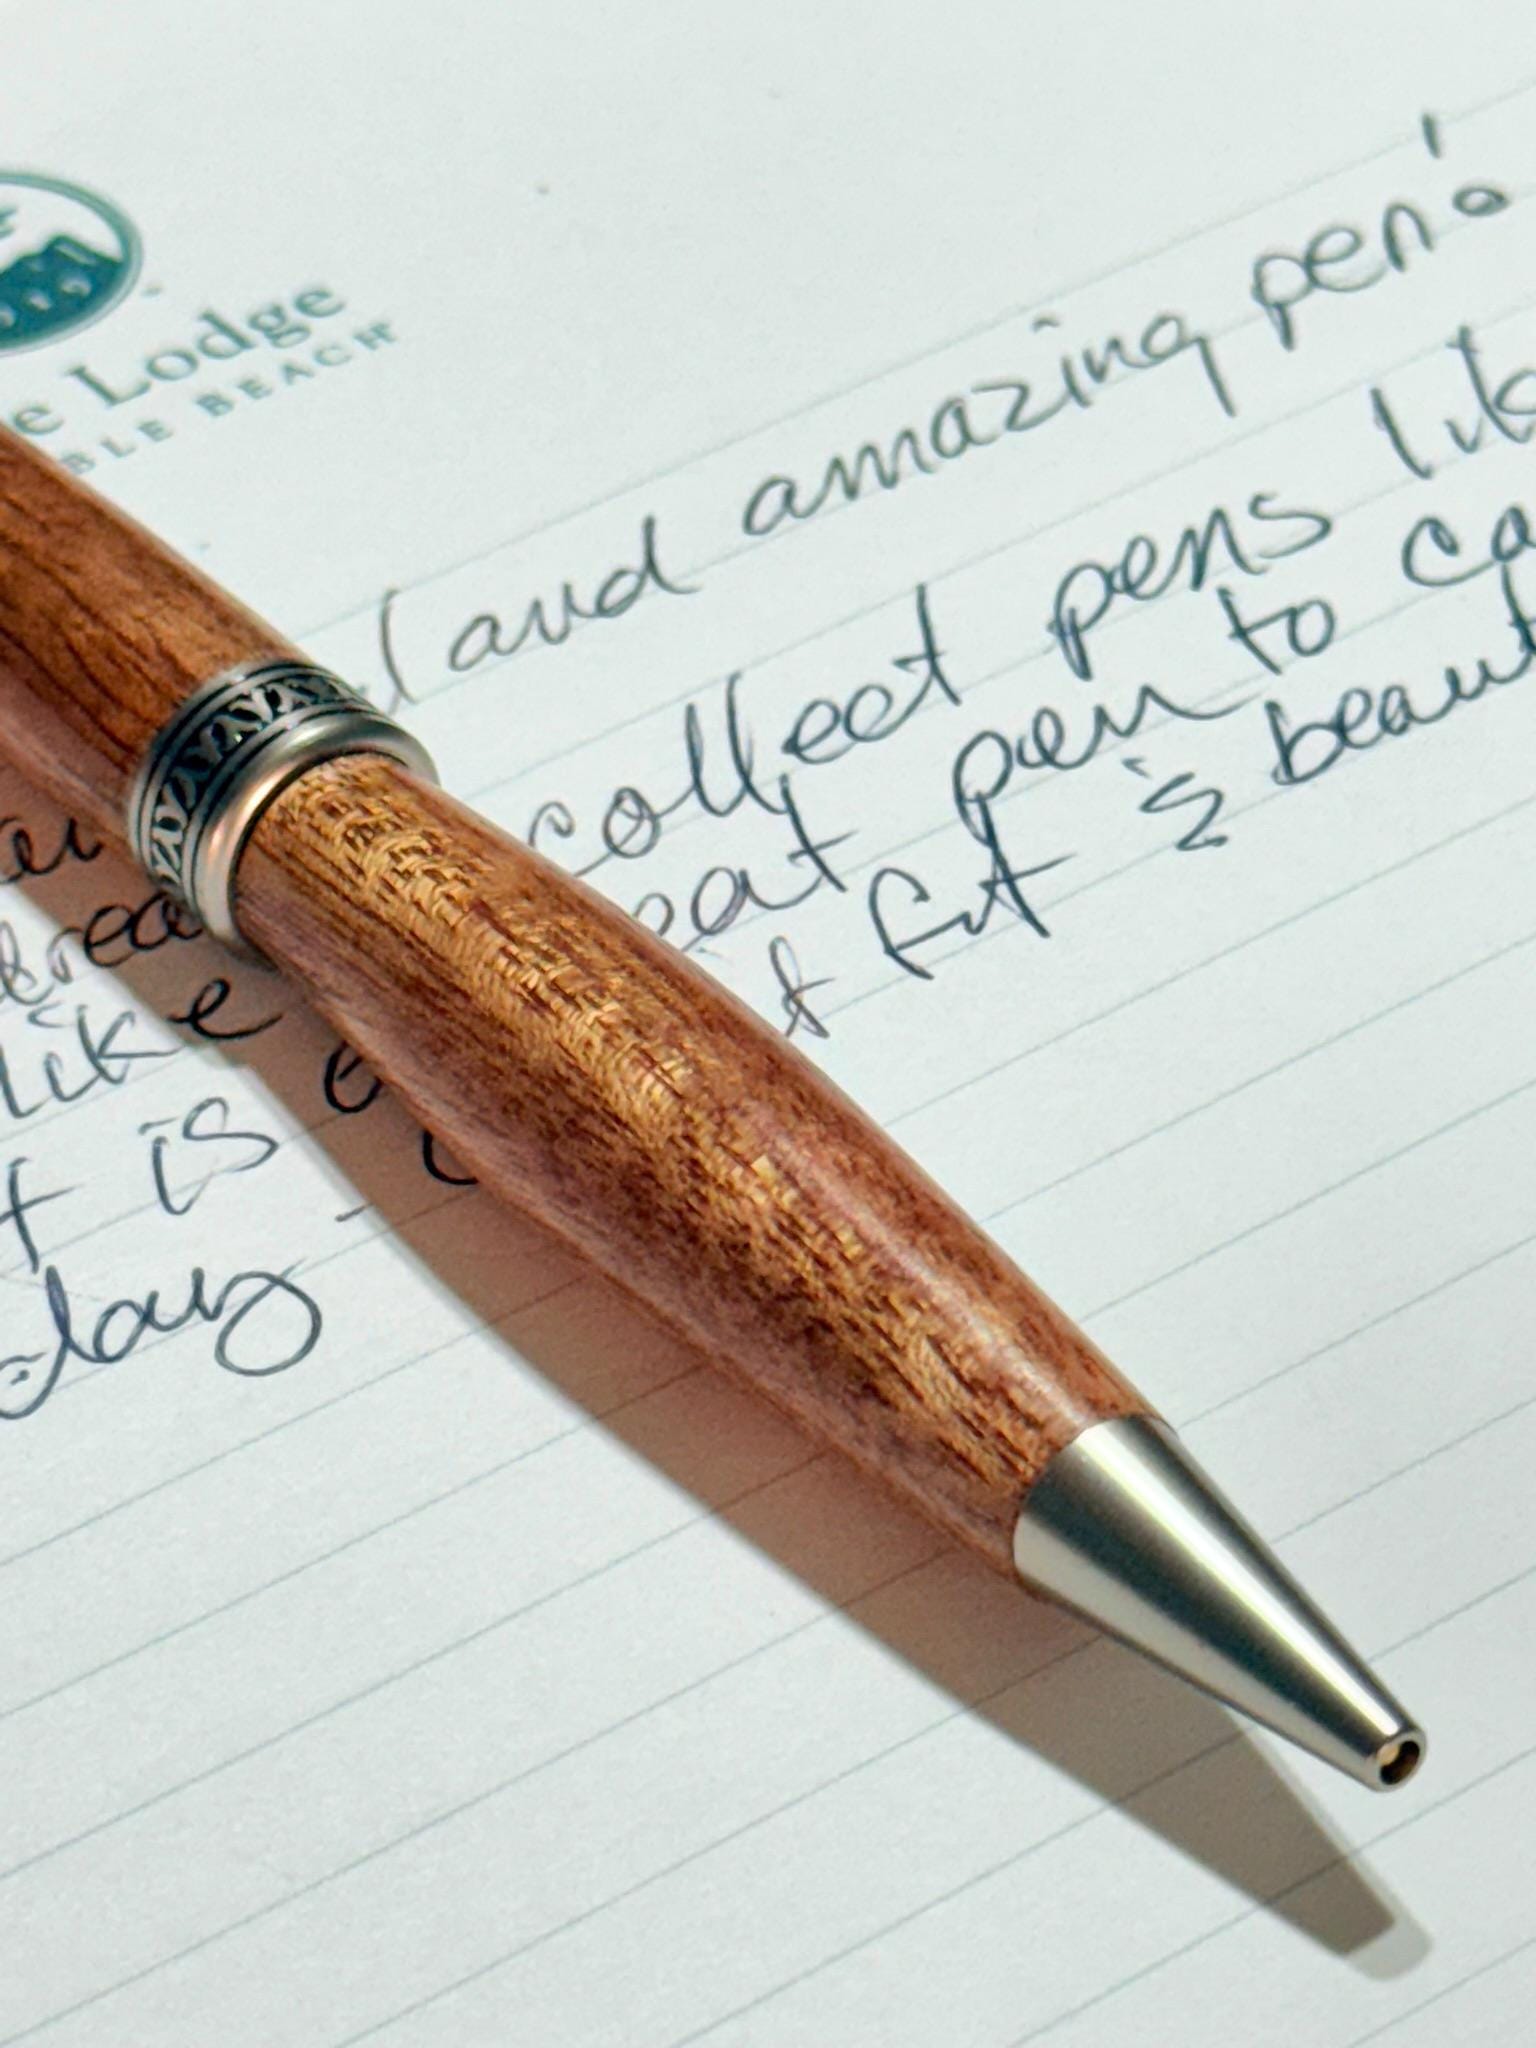 e Lodge
BLE BEACH
and amazing pen!
collect pens lik
eat pen to ca
like t fit is beaut
t is
day